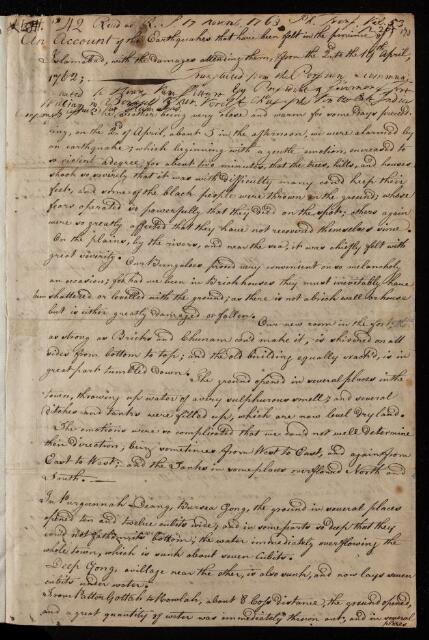 42 Read R. S. 17 Novr. 1763
An Account of the Earthquakes that have been felt in the province of
Islamabad, with the damages attending them, from the 2d to the 19th April,
1762;
translated from the Persian
the Weather being very close and warm for some days preced-
-ing, on the 2d of April, about 5 in the afternoon, we were alarmed by
an earthquake; which beginning with a gentle emotion, increased to
so violent degree, for about two minutes, that the trees, hills, and houses
shook so severely, that it was with difficulty many could keep their
feet, and some of the black people were thrown on the ground; whose
fears operated so powerfully, that they died on the spot; others again
were so greatly affected that they have not recovered themselves since.
On the plains, by the rivers, and near the sea, it was chiefly felt with
great severity. Our Bungaloes proved very convenient on so melancholy
an occasion; for had we been in Brick houses they must inevitably have
been shattered or levelled with the ground; as there is not a brick wall or house
but is either greatly damaged or fallen.
Our new room in the fort,
as strong as Bricks and Chunam could make it, is shivered on all
sides from bottom to top; and the old building equally cracked, is in
great part tumbled down.
The ground opened in several places in the
town, throwing up water of a very sulphurous smell; and several
ditches and tanks were filled up, which are now level dry land.
The emotions were so complicated that we could not well determine
their direction, being sometimes from West to East, and again from
East to West; and the Tanks in some places overflowed North and
South.
In Purgunnah Deang, Bursea Gong, the ground in several places
opened ten and twelve cubits wide; and in some parts so deep that they
could not fathom its bottom; the water immediately overflowing the
whole town, which is sunk about seven Cubits.
Deep Gong, a village near the other, is also sunk, and now lays seven
cubits under water.
From Patter Gottah to Howlah, about 8 Coss distance, the ground opened,
and a great quantity of water was immediately thrown out, and in several
places